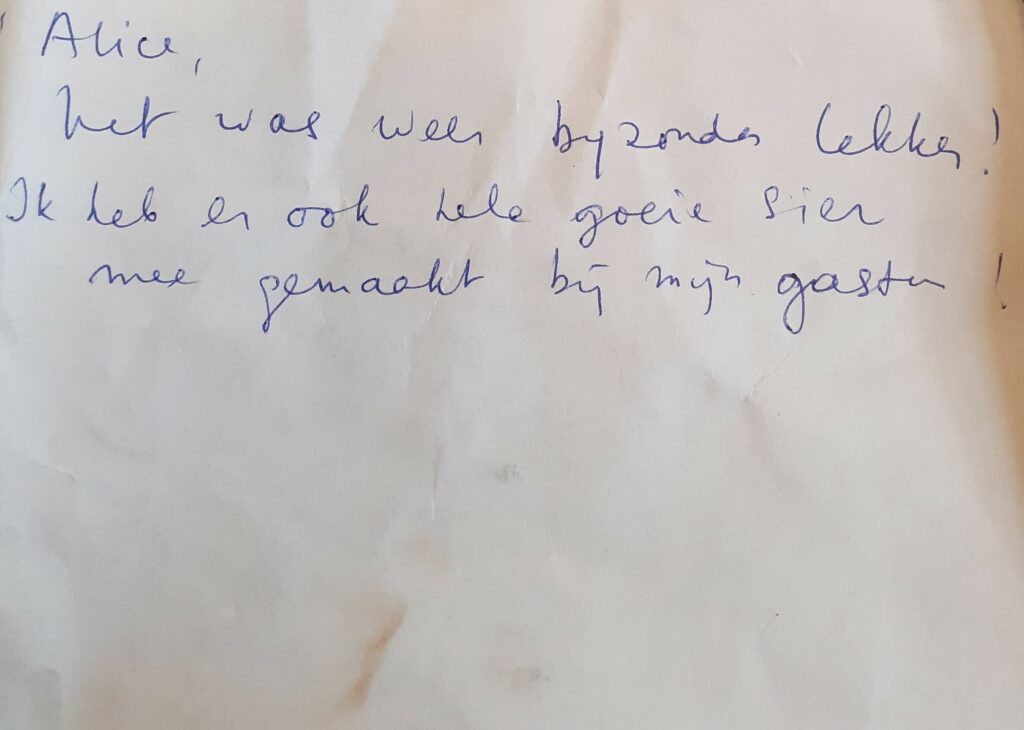 Alice,
het was weer byzonder lekker!
Ik heb er ook hele goeie sier
mee gemaakt bij mijn gasten!